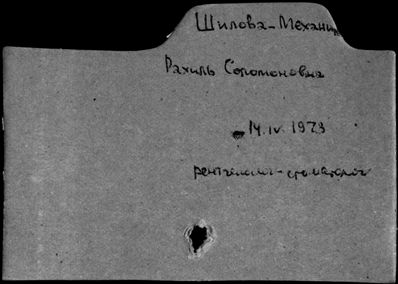 Шилова-Механик
Рахиль Соломоновна
14.IV.1973
рентгенолог-стоматолог